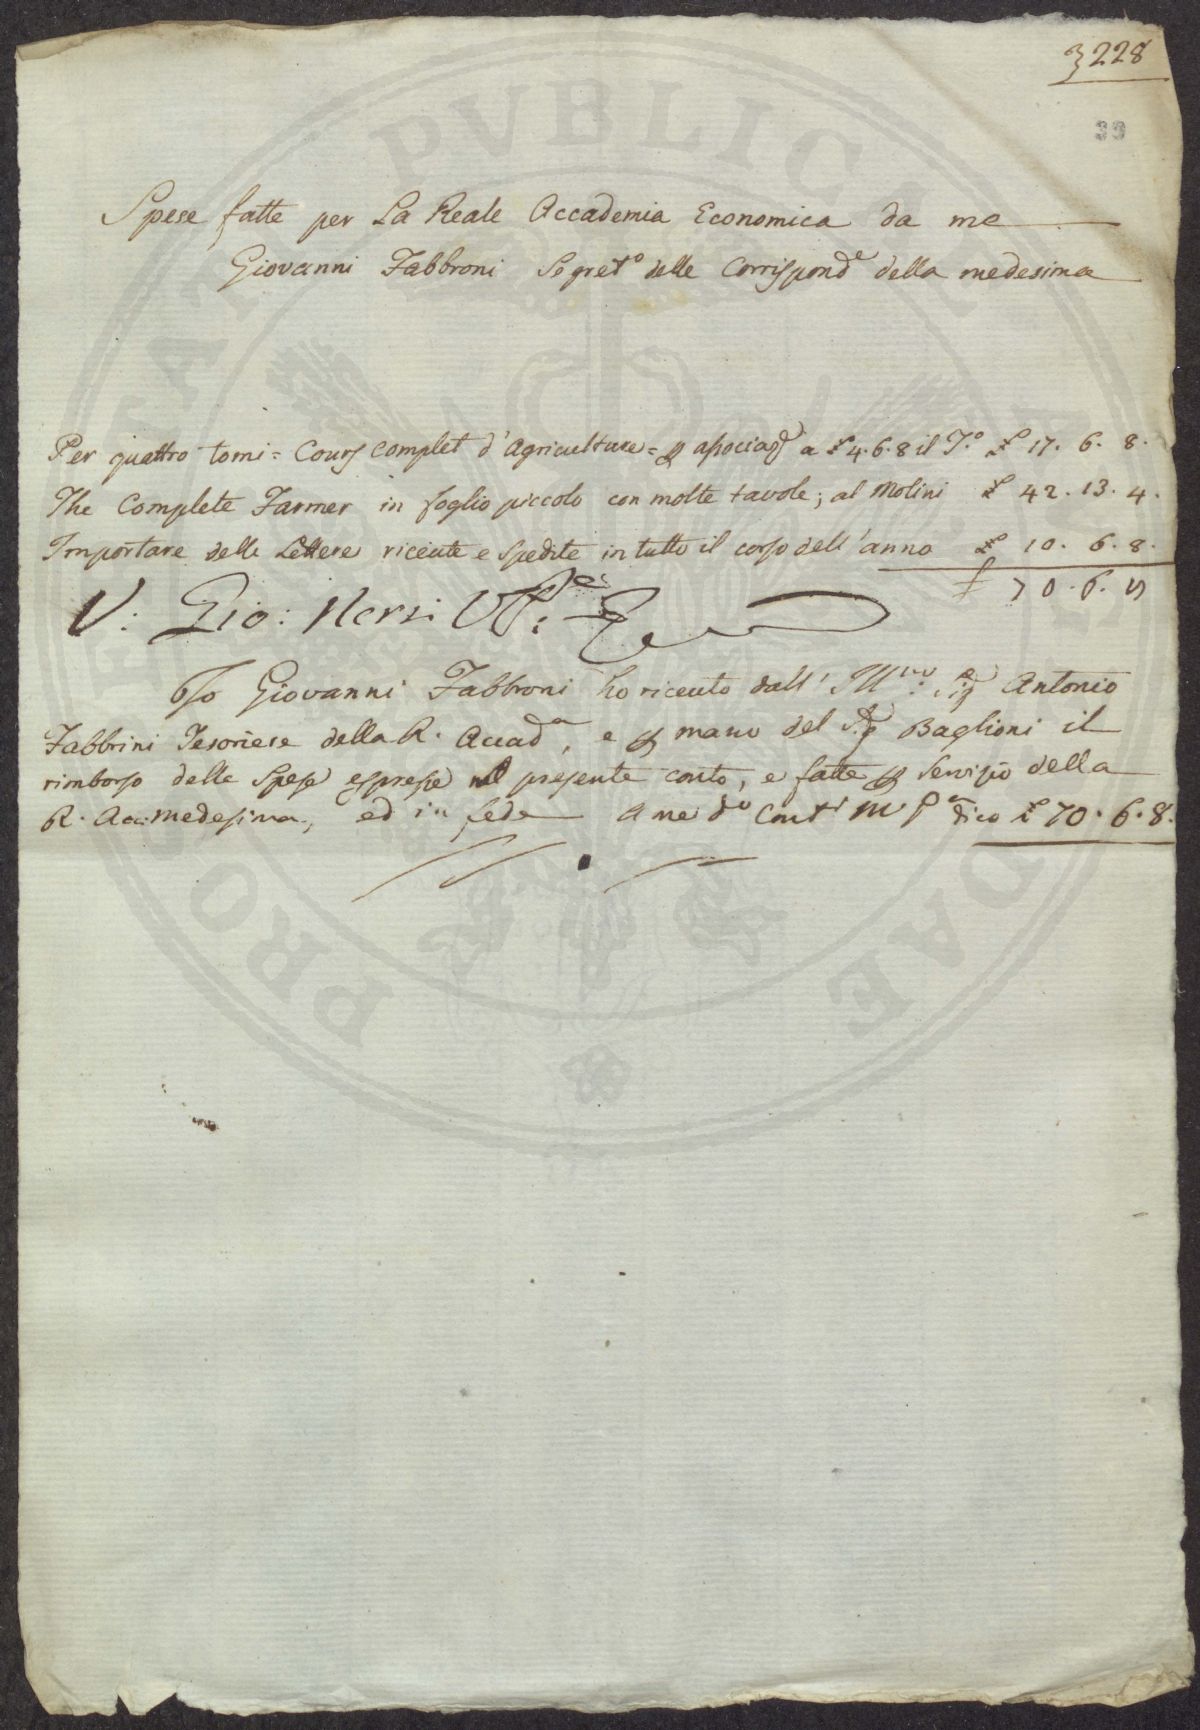 3228
39
Spese fatte per La Reale Accademia Economica da me
Giovanni Fabbroni Segret.o delle Corrispond.e della medesima
Per quattro tomi = Cours complet d'Agriculture = a £ 4.6.8 il T.o £ 17. 6. 8.
The Complete Farmer in foglio piccolo con molte tavole; al Molini £ 42. 13. 4.
Importare delle Lettere riceute e spedite in tutto il corso dell'anno £ 10. 6. 8.
£ 70. 6. 8
V: Gio: Neri
Io Giovanni Fabbroni ho riceuto dall' Ill.mo Sig.r Antonio
Fabbrini Tesoriere della R. Accad.a, e p mano del Sig.r Baglioni il
rimborso delle Spese espresse nel presente conto, e fatte p servizio della
R. Acc: medesima, ed in fede A me d.o Cont.i M P.a dico £ 70. 6. 8.